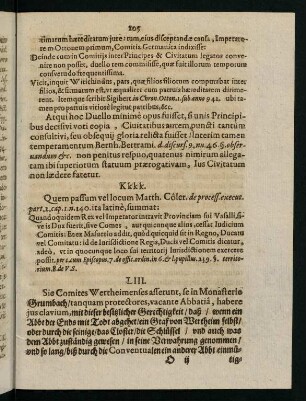 205
timarum hæreditatum jure rum, ejus disceptandæ causâ, Imperato-
rem Ottonem primum, Comitia Germanica indixisse:
Deinde cum in Comitijs inter Principes & Civitatum legatos conve-
nire non posset, duello rem commisisse, quæ fuit illorum temporum
consverudo frequentissima.
Vicit, inquit Wirichindus, pars, quæ filios filiorum computabat inter
filios, & firmatum est, ut æqualiter cum patruis hæreditatem dirime-
rent. Idemque scribit Sigbert in Chron. Otton. 1. sub anno 942. ubi ta-
men pro patruis vitiosè legitur patribus, &c.
Atqui hoc Duello minimè opus fuisset, si unis Principi-
bus decisivi voti copia, Civitatibus autem, punctū tantùm
consultivi, seu obsequij gloria relicta fuisset: Interim tamen
temperamentum Berth. Bertrami. d. discurs. 9. nu. 46. §. obser-
vandum &c. non penitus respuo, quatenus nimirum allega-
tam ibi superiorum statuum prærogativam, Ius Civitatum
non lædere fatetur.
Kkkk.
Quem passum vel locum Matth. Côler. de process. execut.
part. 2. cap. 1. n. 140. ita latinè, summat:
Quandoquidem Rex vel Imperator intravit Provinciam sui Vasalli, si-
ve is Dux fuerit, sive Comes, aut cujuscunque alius, cessat Iudicium
Comitis: Estq; Maiestatis addit, quò quidquid sit in Regno, Ducatu
vel Comitatu: id de Iurisdictione Regis, Ducis vel Comitis dicatur,
adeò, ut in quocunque loco sui territorij Iurisdictionem exercere
possit. per l. cum Episcopus. 7. de offic. ordin. in 6. & l. pupillus. 239. §. territo-
rium. 8. de V. S.
LIII.
Sic Comites Wertheimenses asserunt, se in Monasterio
Grumbach / tanquam protectores, vacante Abbatiâ, habere
jus clavium, mit dieser besitzlicher Gerechtigkeit / daß / wenn ein
Abbt der Ends mit Todt abgehet / ein Graf von Wertheim selbst /
oder durch die seinige / das Closter / die Schlüssel / und auch was
dem Abbt zuständig gewesen / in seine Verwahrung genommen /
und so lang / biß durch die Conventualen ein anderer Abbt einmü-
O ij
tig-